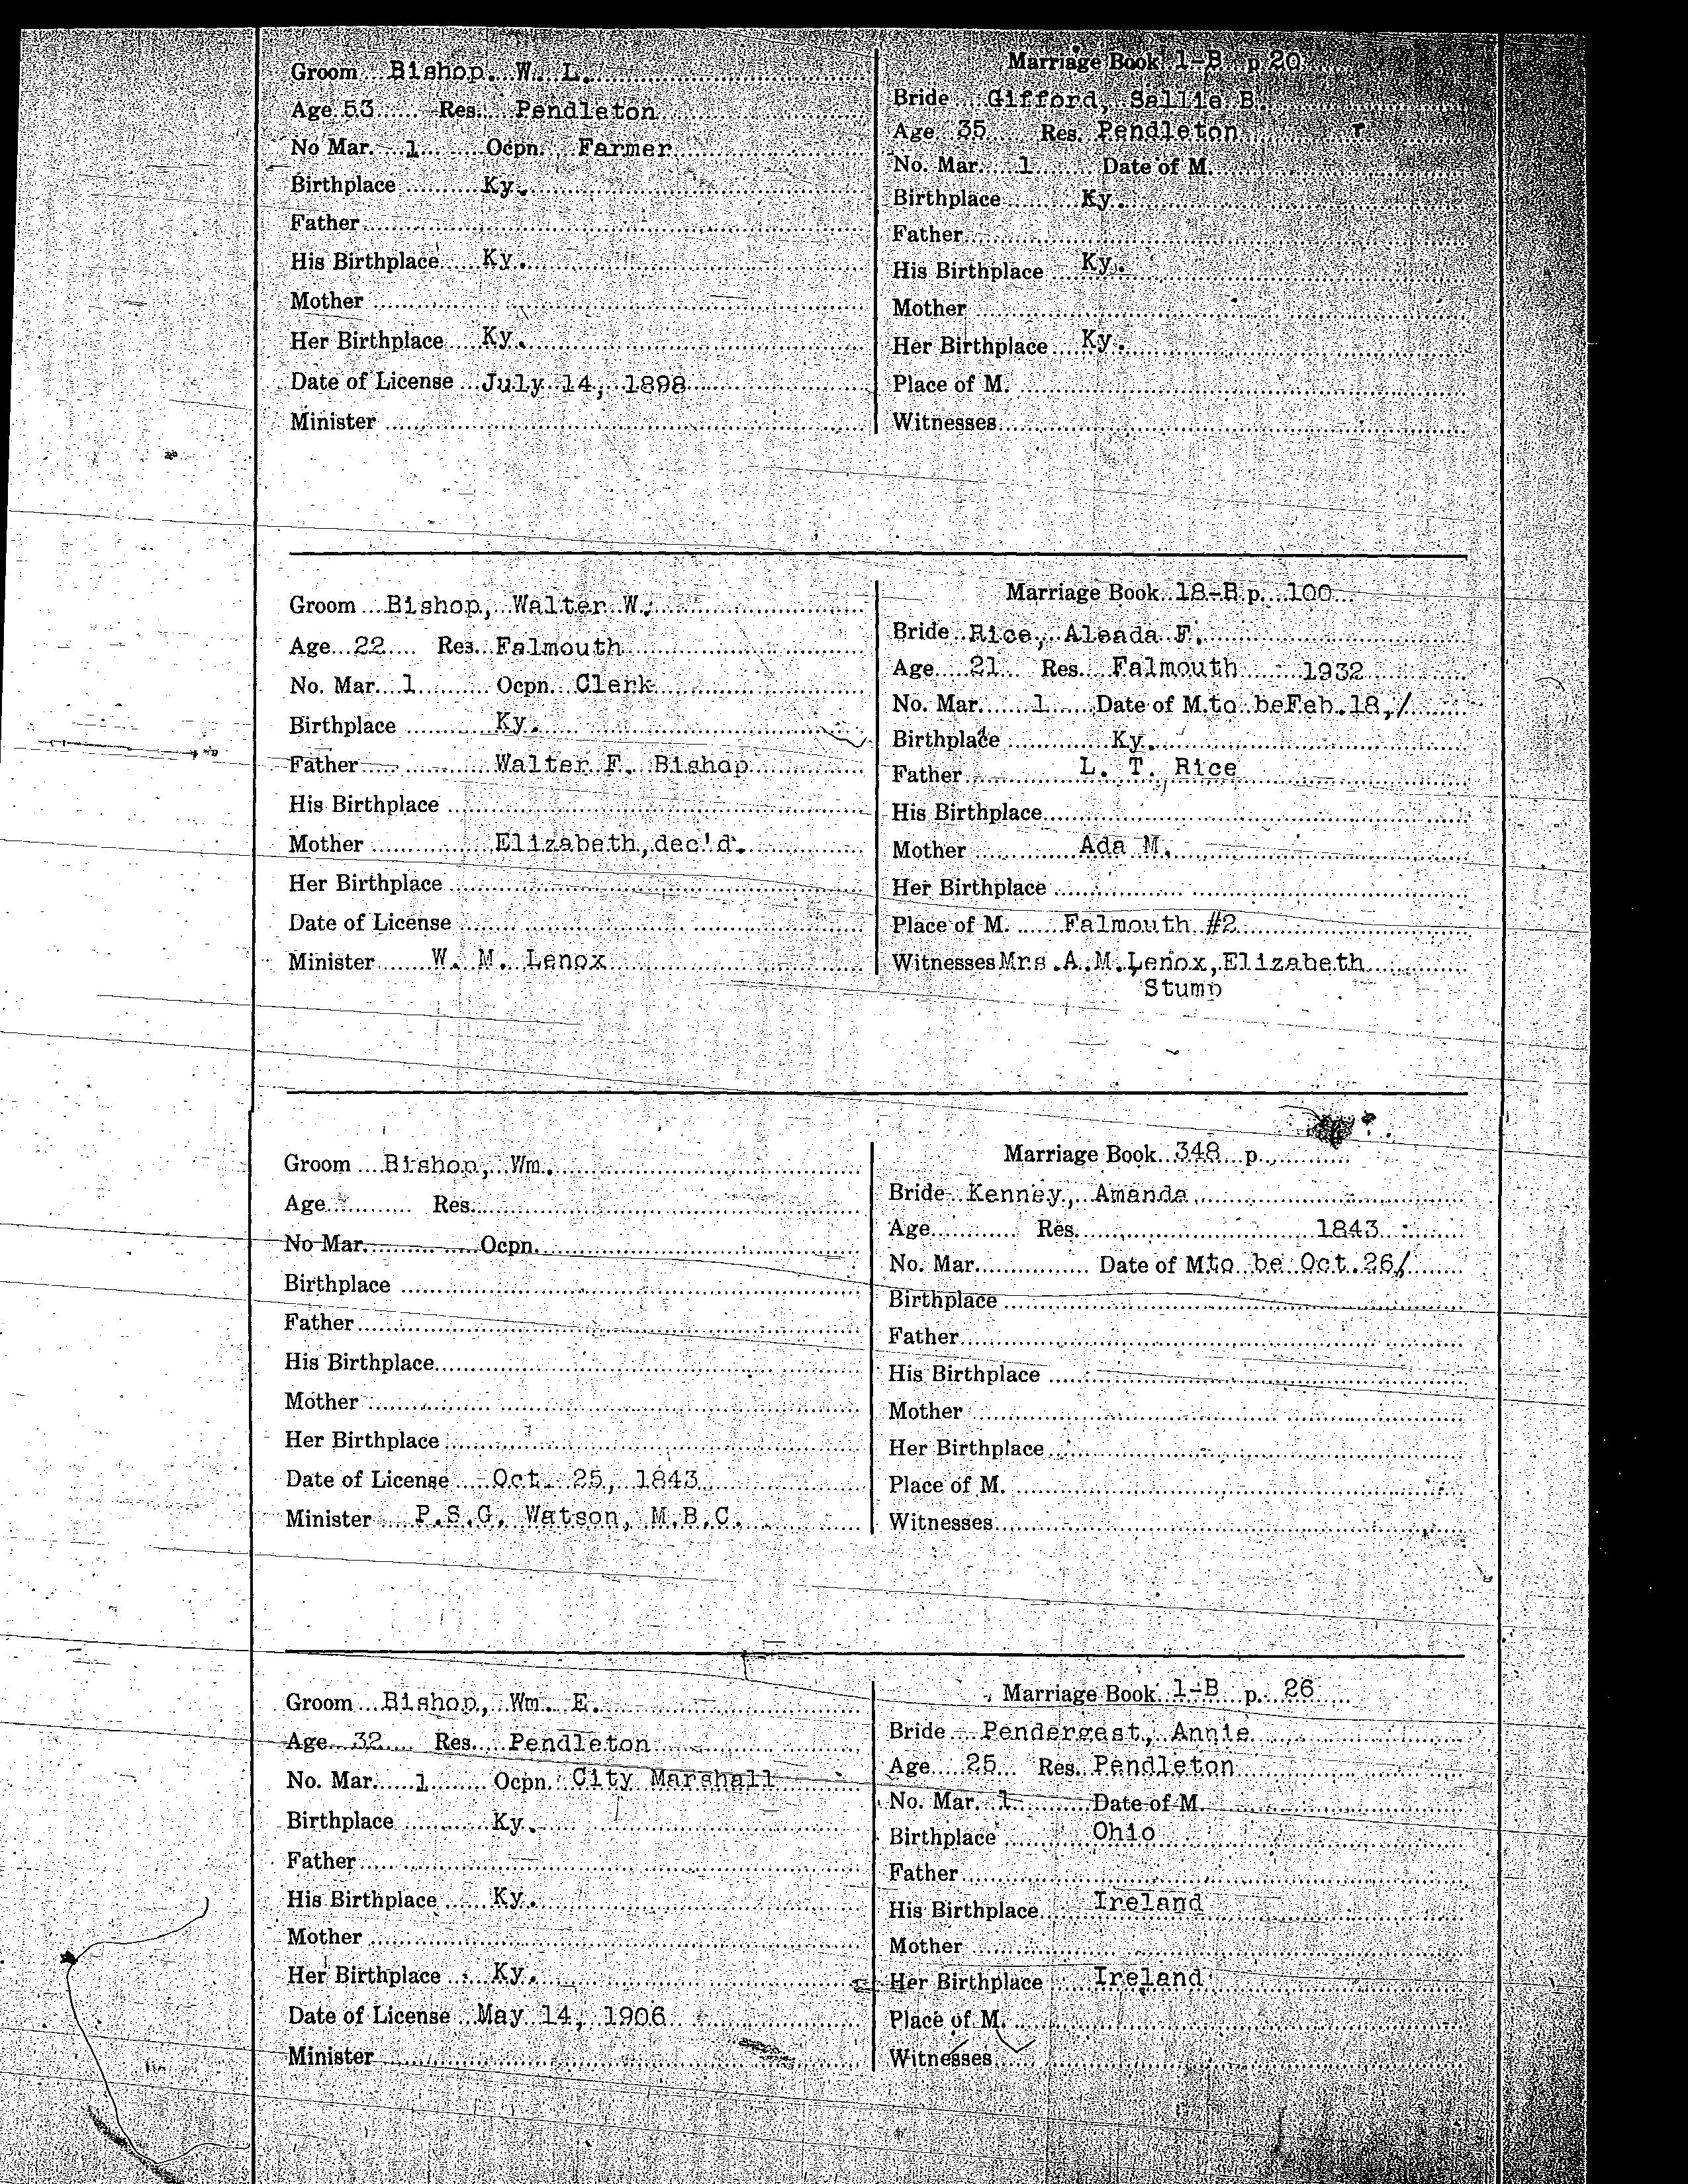 Groom Bishop, W. L.
Age 53 Res. Pendleton
No Mar. 1 Ocpn. Farmer
Birthplace Ky.
Father
His Birthplace Ky.
Mother
Her Birthplace Ky.
Date of License July 14, 1898
Minister
Marriage Book 1-B p 20
Bride Gifford, Sallie B.
Age 35 Res. Pendleton
No. Mar. 1 Date of M.
Birthplace Ky.
Father
His Birthplace Ky.
Mother
Her Birthplace Ky.
Place of M.
Witnesses
Groom Bishop, Walter W.
Age 22 Res. Falmouth
No. Mar. 1 Ocpn. Clerk
Birthplace Ky.
Father Walter F. Bishop
His Birthplace
Mother Elizabeth, dec'd.
Her Birthplace
Date of License
Minister W. M. Lenox
Marriage Book 18-B p. 100
Bride Rice, Aleada F.
Age 21 Res. Falmouth 1932
No. Mar. 1 Date of M. to be Feb. 18,/
Birthplace Ky.
Father L. T. Rice
His Birthplace
Mother Ada M.
Her Birthplace
Place of M. Falmouth #2
Witnesses Mrs. A. M. Lenox, Elizabeth
Stump
Groom Bishop, Wm.
Age Res.
No Mar. Ocpn.
Birthplace
Father
His Birthplace
Mother
Her Birthplace
Date of License Oct. 25, 1843
Minister P.S.G. Watson, M.B.C.
Marriage Book 348 p.
Bride Kenney, Amanda
Age Res. 1843
No. Mar. Date of M to be Oct. 26/
Birthplace
Father
His Birthplace
Mother
Her Birthplace
Place of M.
Witnesses
Groom Bishop, Wm. E.
Age 32 Res. Pendleton
No. Mar. 1 Ocpn. City Marshall
Birthplace Ky.
Father
His Birthplace Ky.
Mother
Her Birthplace Ky.
Date of License May 14, 1906
Minister
Marriage Book 1-B p. 26
Bride Pendergast, Annie
Age 25 Res. Pendleton
No. Mar. 1 Date of M.
Birthplace Ohio
Father
His Birthplace Ireland
Mother
Her Birthplace Ireland
Place of M.
Witnesses